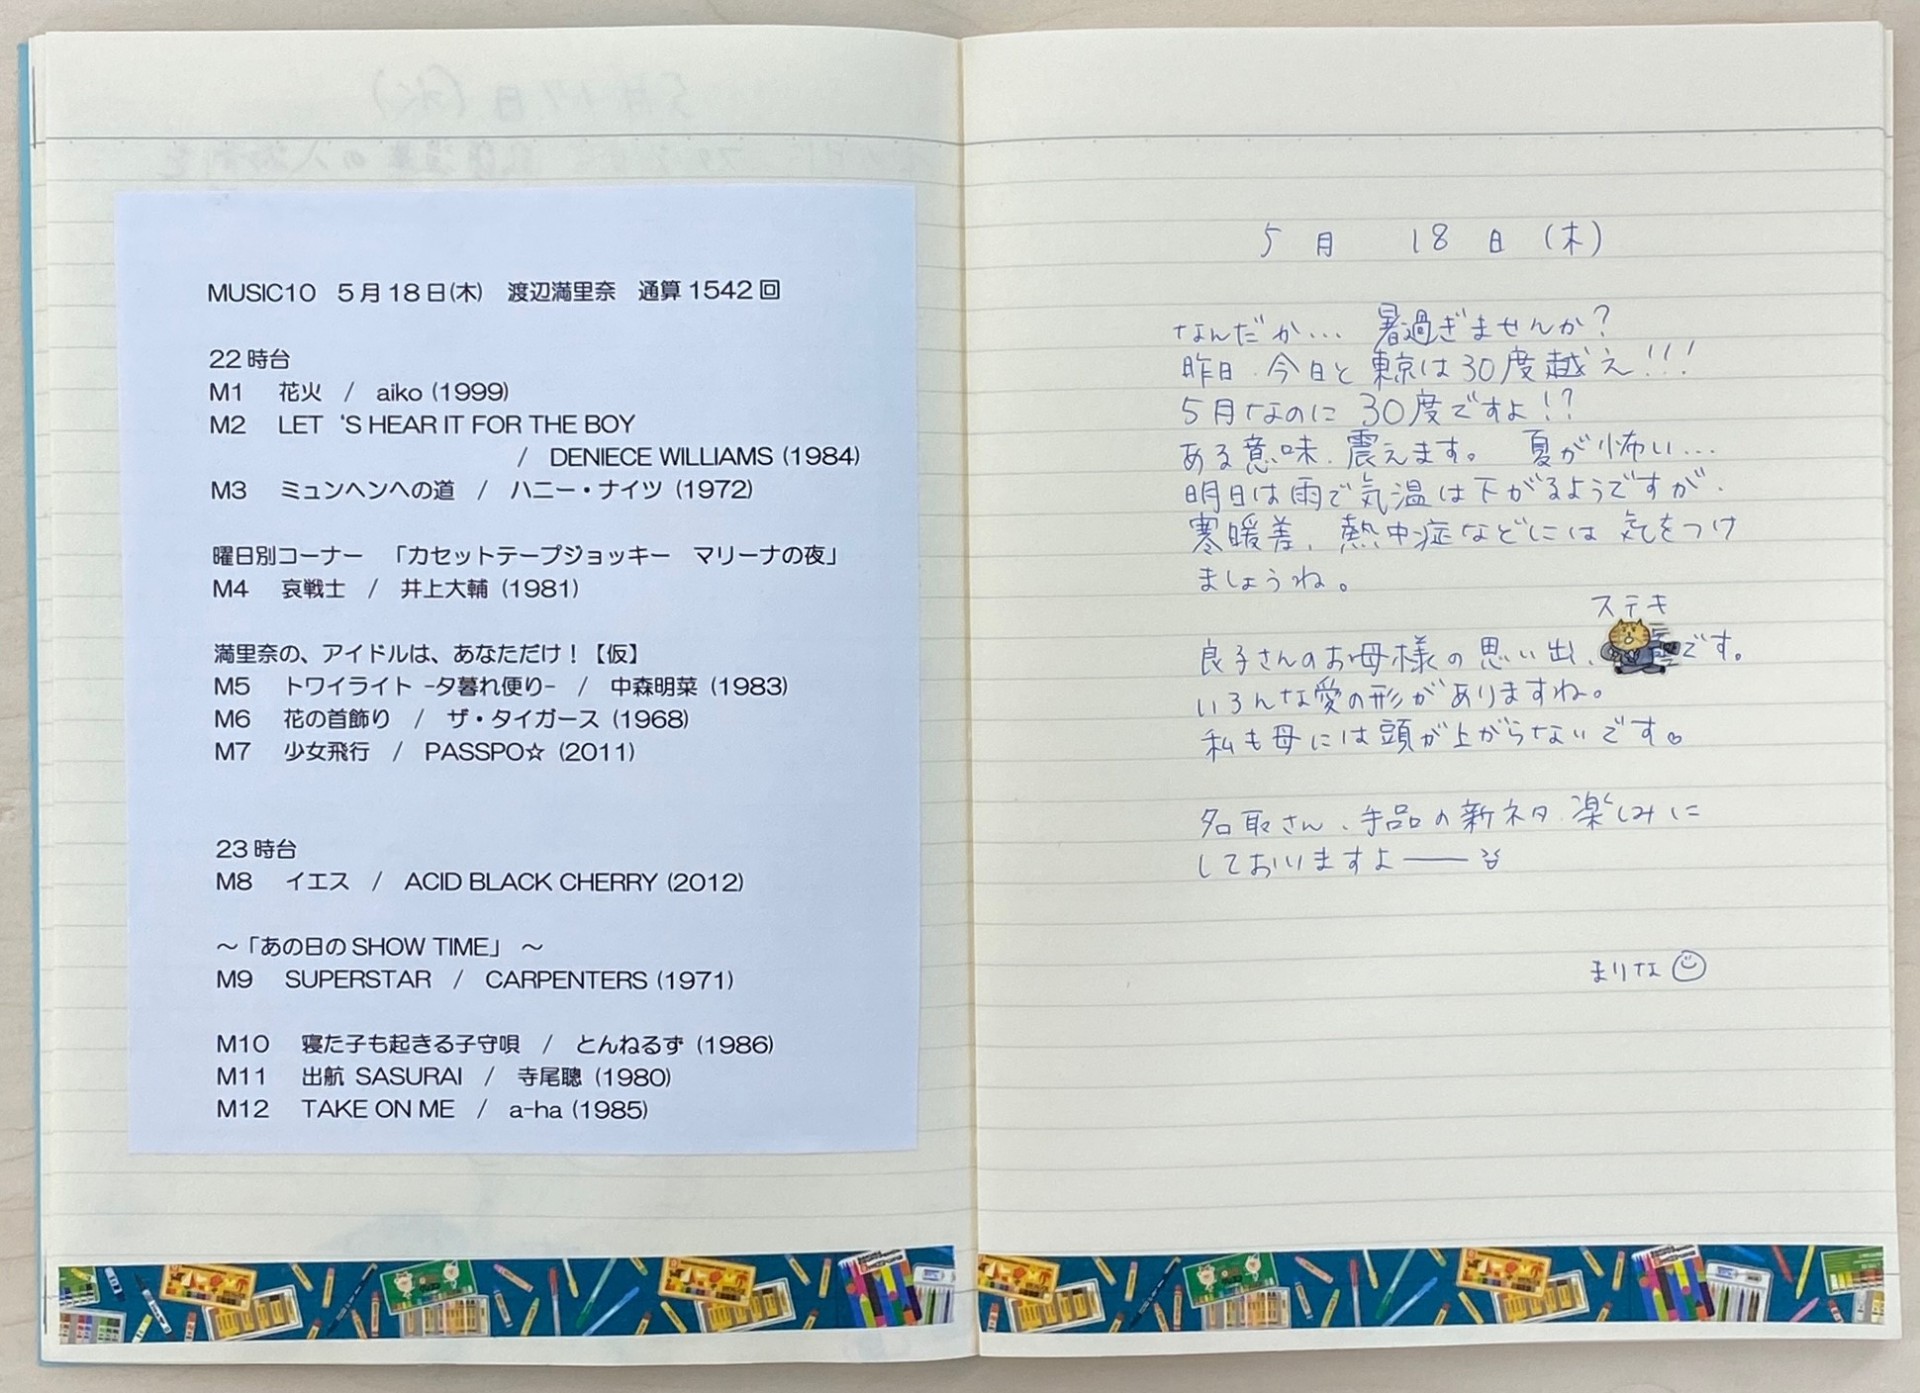 MUSIC10 5月18日(木) 渡辺満里奈 通算1542回
22時台
M1 花火 / aiko (1999)
M2 LET ‘S HEAR IT FOR THE BOY
/ DENIECE WILLIAMS (1984)
M3 ミュンヘンへの道 / ハニー・ナイツ (1972)
曜日別コーナー 「カセットテープジョッキー マリーナの夜」
M4 哀戦士 / 井上大輔 (1981)
満里奈の、アイドルは、あなただけ!【仮】
M5 トワイライト -夕暮れ便り- / 中森明菜 (1983)
M6 花の首飾り / ザ・タイガース (1968)
M7 少女飛行 / PASSPO☆ (2011)
23時台
M8 イエス / ACID BLACK CHERRY (2012)
～「あの日のSHOW TIME」 ～
M9 SUPERSTAR / CARPENTERS (1971)
M10 寝た子も起きる子守唄 / とんねるず (1986)
M11 出航 SASURAI / 寺尾聰 (1980)
M12 TAKE ON ME / a-ha (1985)
5月 18日 (木)
なんだか… 暑過ぎませんか?
昨日、今日と東京は30度越え!!!
5月なのに 30度ですよ!?
ある意味、震えます。 夏が怖い…
明日は雨で気温は下がるようですが、
寒暖差、熱中症などには気をつけ
ましょうね。
ステキ
良子さんのお母様の思い出、です。
いろんな愛の形がありますね。
私も母には頭が上がらないです。
名取さん、手品の新ネタ、楽しみに
しておりますよ――
まりな